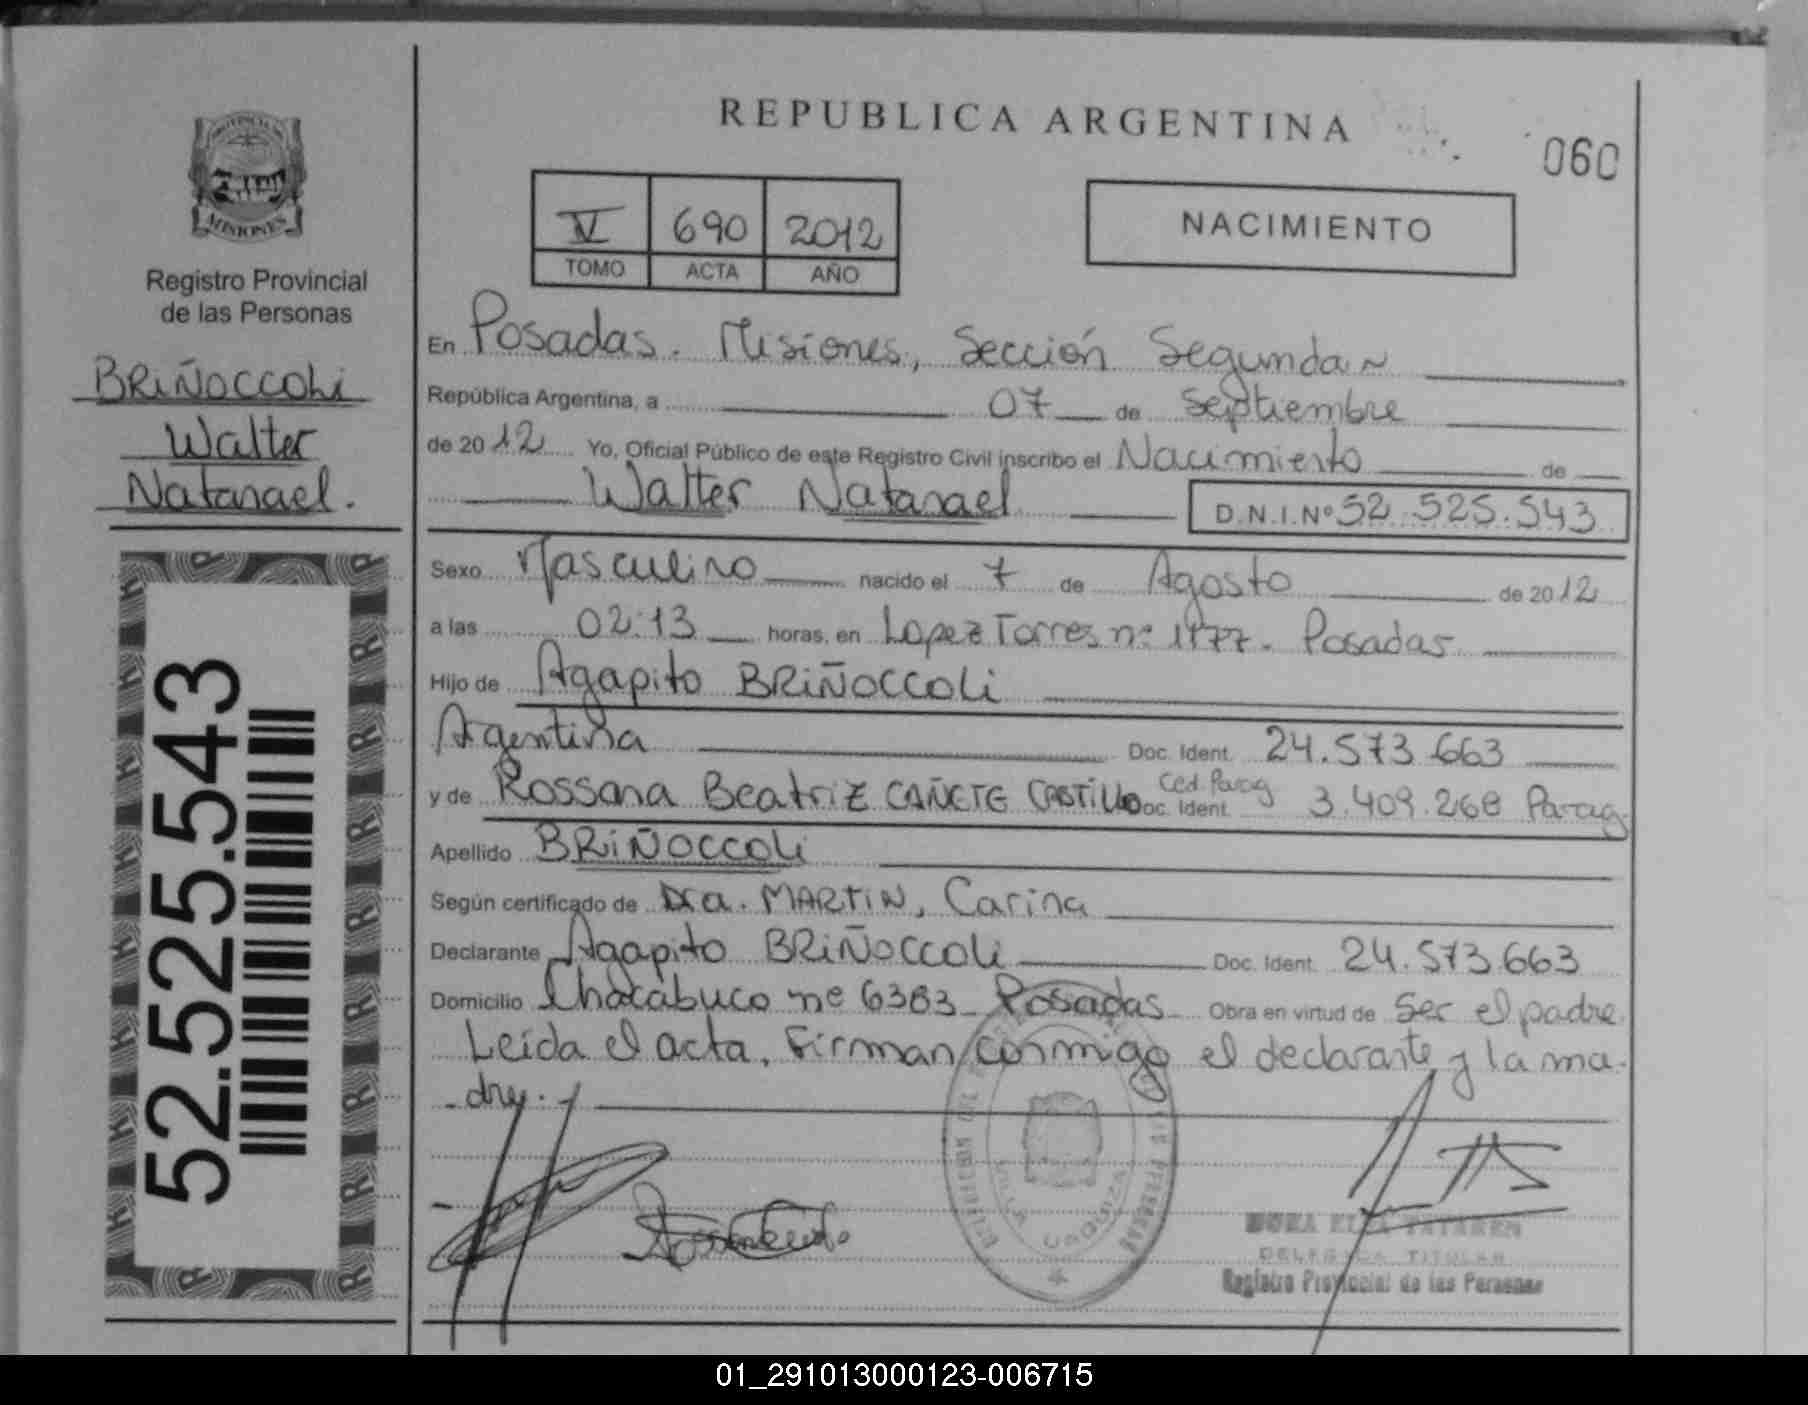 REPUBLICA ARGENTINA
060
PROVINCIA DE
MISIONES
Registro Provincial
de las Personas
BRIÑOCCOLI
Walter
Natanael.
52.525.543
V 690 2012
TOMO ACTA AÑO
NACIMIENTO
En Posadas. Misiones, Sección Segunda
República Argentina, a 07 de Septiembre
de 2012 Yo, Oficial Público de este Registro Civil inscribo el Nacimiento de
Walter Natanael D.N.I.Nº 52.525.543
Sexo Masculino nacido el 7 de Agosto de 2012
a las 02:13 horas, en Lopez Torres nº 1177. Posadas
Hijo de Agapito BRIÑOCCOLI
Argentina Doc. Ident. 24.573.663
Ced. Parag
y de Rossana Beatriz CAÑETE CASTILLO Doc. Ident. 3.409.268 Parag.
Apellido BRIÑOCCOLI
Según certificado de Dra. MARTIN, Carina
Declarante Agapito BRIÑOCCOLI Doc. Ident. 24.573.663
Domicilio Chacabuco nº 6383 Posadas Obra en virtud de Ser el padre.
Leída el acta, Firman conmigo el declarante y la ma-
dre.-
DELEGADA TITULAR
Registro Provincial de las Personas
01_291013000123-006715